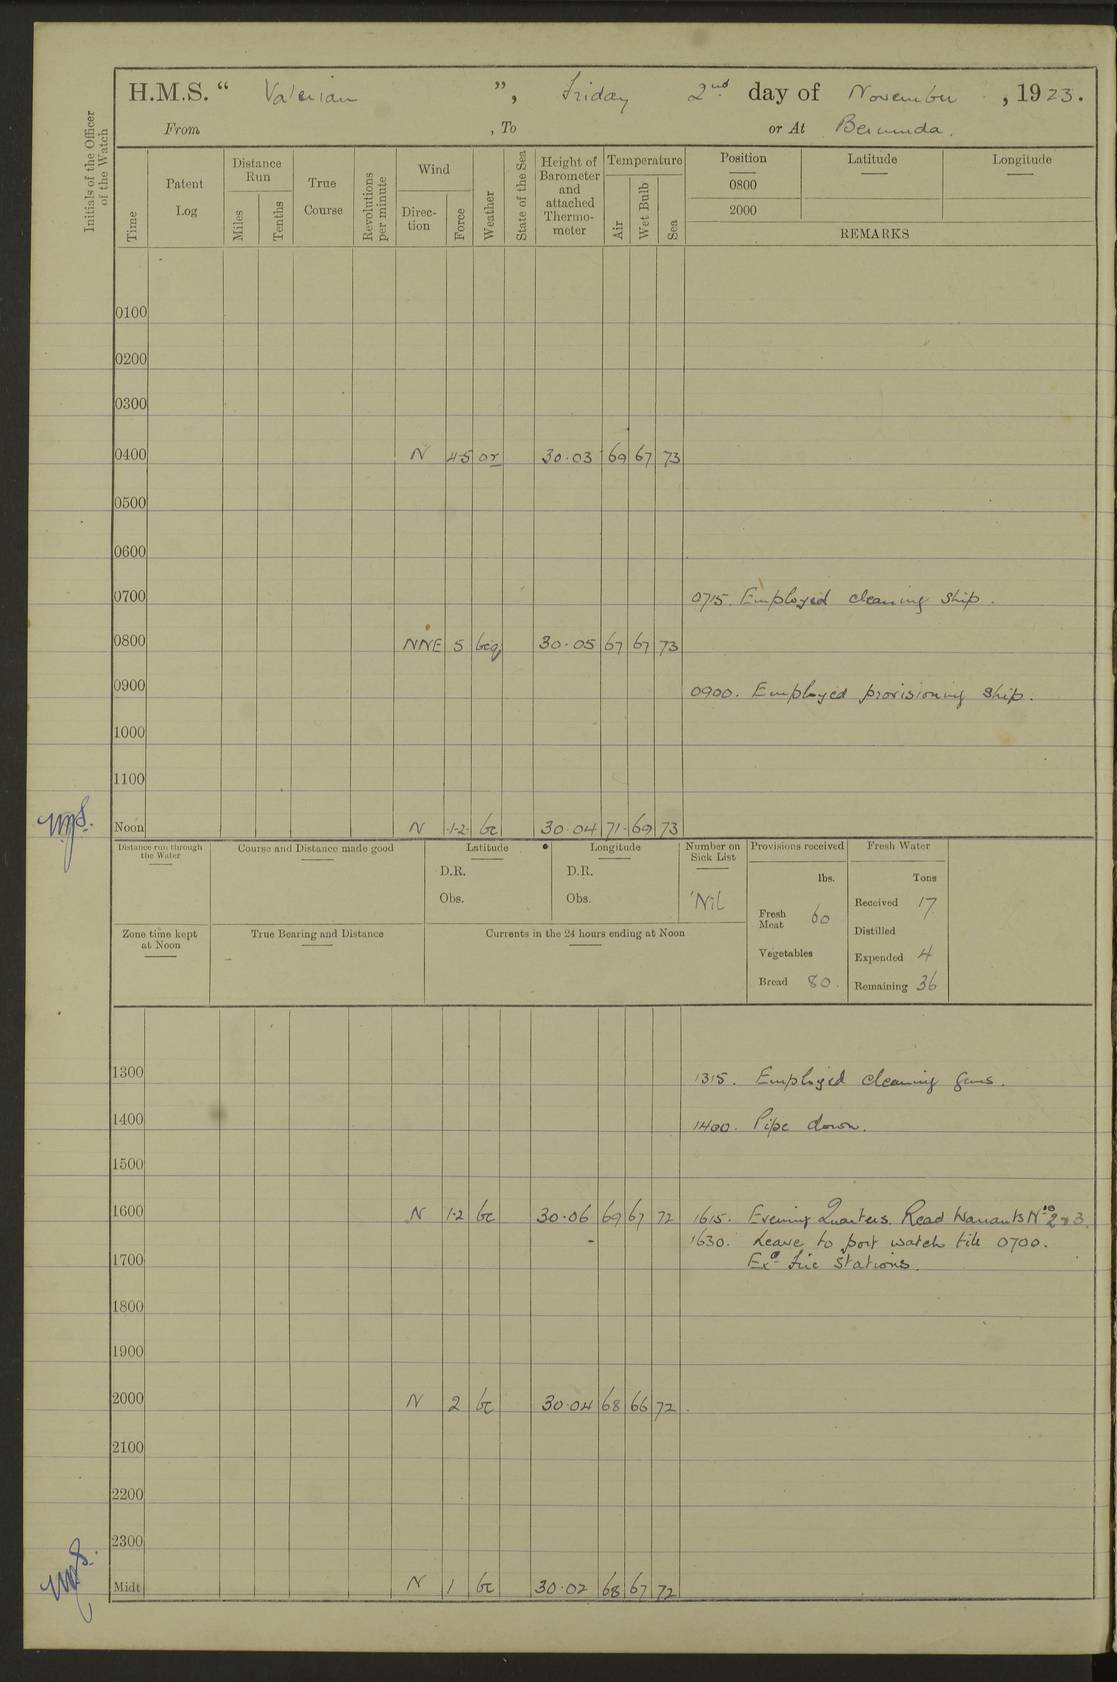 H.M.S. “ Valerian ”, Friday 2nd day of November, 1923.
From , To or At Bermuda.
Initials of the Officer of the Watch
Time
Patent Log
Distance Run
Miles
Tenths
True Course
Revolutions per minute
Wind
Direc-tion
Force
Weather
State of the Sea
Height of Barometer and attached Thermo-meter
Temperature
Air
Wet Bulb
Sea
Position
0800
2000
Latitude
Longitude
REMARKS
0100
0200
0300
0400 N 4-5 or 30.03 69 67 73
0500
0600
0700 0715. Employed cleaning ship.
0800 NNE 5 bcq 30.05 67 67 73
0900 0900. Employed provisioning ship.
1000
1100
Noon N 1-2 bc 30.04 71 69 73
Distance run through the Water
Course and Distance made good
Latitude
D.R.
Obs.
Longitude
D.R.
Obs.
Number on Sick List
Nil
Provisions received
lbs.
Fresh Meat 60
Vegetables
Bread 80.
Fresh Water
Tons
Received 17
Distilled
Expended 4
Remaining 36
Zone time kept at Noon
True Bearing and Distance
Currents in the 24 hours ending at Noon
1300 1315. Employed cleaning guns.
1400 1400. Pipe down.
1500
1600 N 1-2 bc 30.06 69 67 72 1615. Evening Quarters. Read Warrants Nos 2 & 3.
1630. Leave to port watch till 0700.
1700 Exd Fire Stations.
1800
1900
2000 N 2 bc 30.04 68 66 72
2100
2200
2300
Midt N 1 bc 30.02 68 67 72